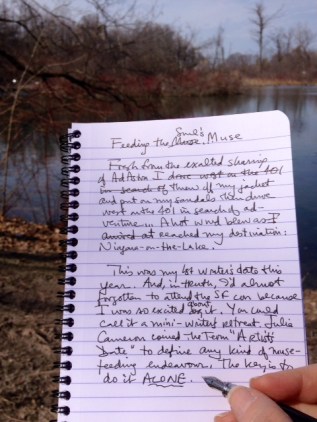 Feeding the Muse. Soul's Muse
Fresh from the exalted sharing
of Ad Astra I drove west on the 401
in search of threw off my jacket
and put on my sandals then drove
west on the 401 in search of ad-
venture... A hot wind blew as I
arrived at reached my destination:
Niagara-on-the-Lake.
This was my 1st writer's date this
year. And, in truth, I'd almost
forgotten to attend the SF con because
I was so excited about it. You could
call it a mini-writer's retreat. Julia
Cameron coined the term "Artist's
Date" to define any kind of muse-
feeding endeavour. The key is to
do it ALONE.